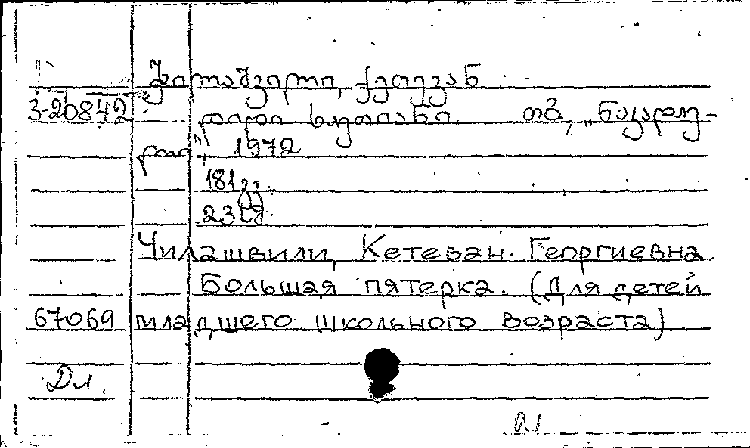 ჭილაშვილი, ქეთევან
3-20842 დიდი ხუთიანი. თბ., „ნაკადუ-
ლი", 1972
181გვ.
Чилашвили, Кетеван Георгиевна
Большая пятерка. (Для детей
67069 младшего школьного возраста)
Дл.